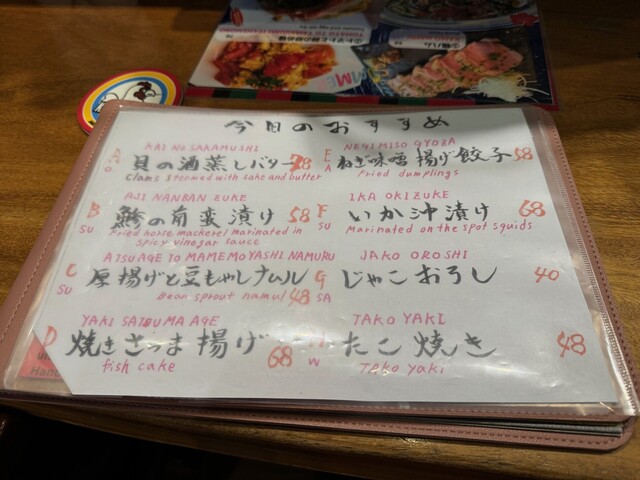 今日のおすすめ
KAI NO SAKAMUSHI
貝の酒蒸しバター 78
Clams steamed with sake and butter
E
NEGI MISO GYOZA
ねぎ味噌揚げ餃子 58
Fried dumplings
B
SU
AJI NANBAN ZUKE
鯵の南蛮漬け 58
Fried horse mackerel marinated in
spicy vinegar sauce
F
SU
IKA OKIZUKE
いか沖漬け 68
Marinated on the spot squids
C
SU
ATSUAGE TO MAMEMOYASHI NAMURU
厚揚げと豆もやしナムル
Bean sprout namul 48
G
SA
JAKO OROSHI
じゃこおろし 40
D
YAKI SATSUMA AGE
焼きさつま揚げ 68
fish cake
TAKO YAKI
たこ焼き 48
Tako yaki